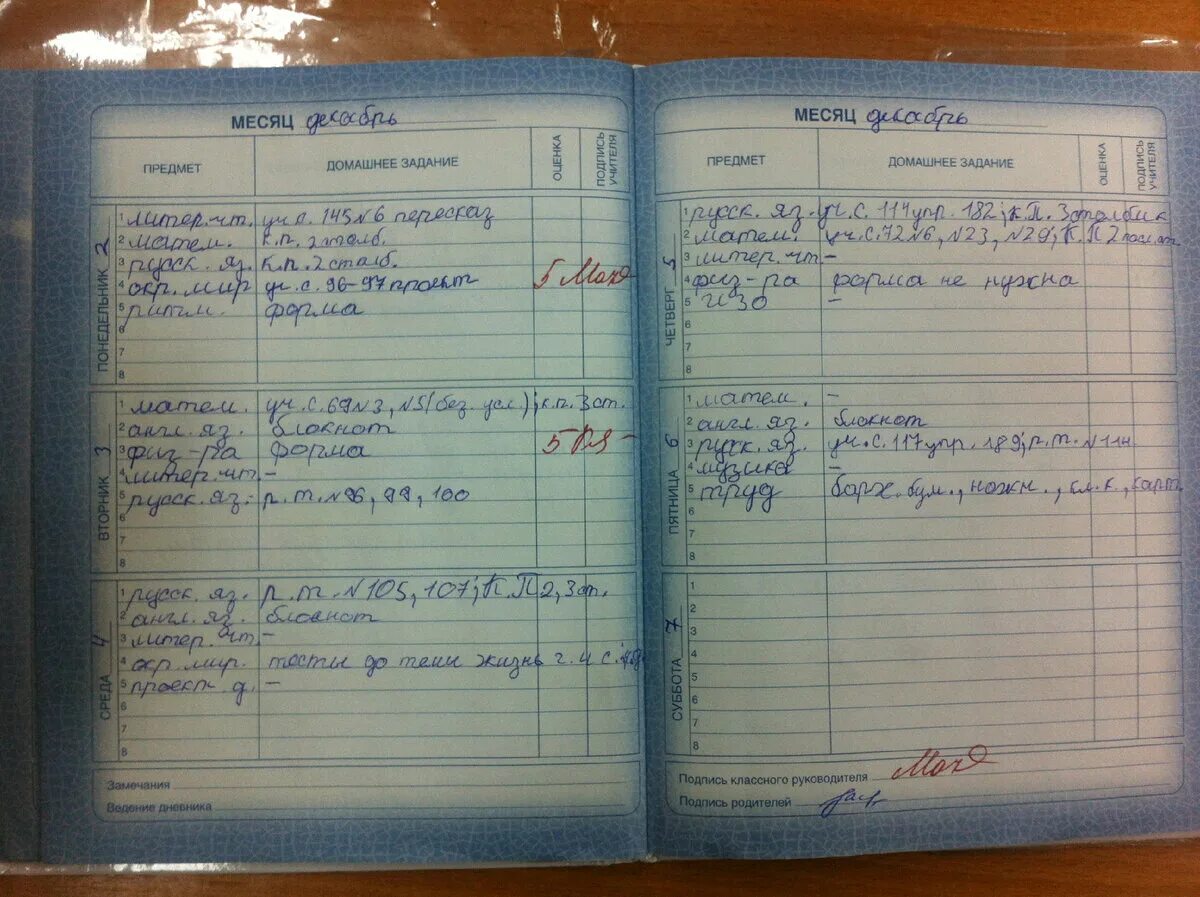 МЕСЯЦ декабрь
ПРЕДМЕТ ДОМАШНЕЕ ЗАДАНИЕ ОЦЕНКА ПОДПИСЬ УЧИТЕЛЯ
ПОНЕДЕЛЬНИК 2
1 литер. чт. уч. с. 145 №6 пересказ
2 матем. к.п. 2 столб.
3 русск. яз. к.п. 2 столб.
4 окр. мир уч. с. 96-97 проект 5
5 ритм. форма
6
7
8
ВТОРНИК 3
1 матем. уч. с. 69 №3, №5 (без. усл.); к.п. 3 ст.
2 англ. яз. блокнот
3 физ-ра форма 5
4 литер. чт. -
5 русск. яз. р. т. №96, 99, 100
6
7
8
СРЕДА 4
1 русск. яз. р. т. №105, 107; К.П 2, 3 ст.
2 англ. яз. блокнот
3 литер. чт. -
4 окр. мир. тесты до темы жизнь г. и с.
5 проект. д. -
6
7
8
Замечания
Ведение дневника
МЕСЯЦ декабрь
ПРЕДМЕТ ДОМАШНЕЕ ЗАДАНИЕ ОЦЕНКА ПОДПИСЬ УЧИТЕЛЯ
ЧЕТВЕРГ 5
1 русск. яз. уч. с. 114 упр. 182; к.П. 3 столбик
2 матем. уч. с. 72 №6, №23, №29; К.П 2
3 литер. чт -
4 физ-ра форма не нужна
5 ИЗО -
6
7
8
ПЯТНИЦА 6
1 матем. -
2 англ. яз. блокнот
3 русск. яз. уч. с. 117 упр. 189; р. т.
4 музыка -
5 труд барх. бум., ножн., кл. к., карт.
6
7
8
СУББОТА 7
1
2
3
4
5
6
7
8
Подпись классного руководителя
Подпись родителей